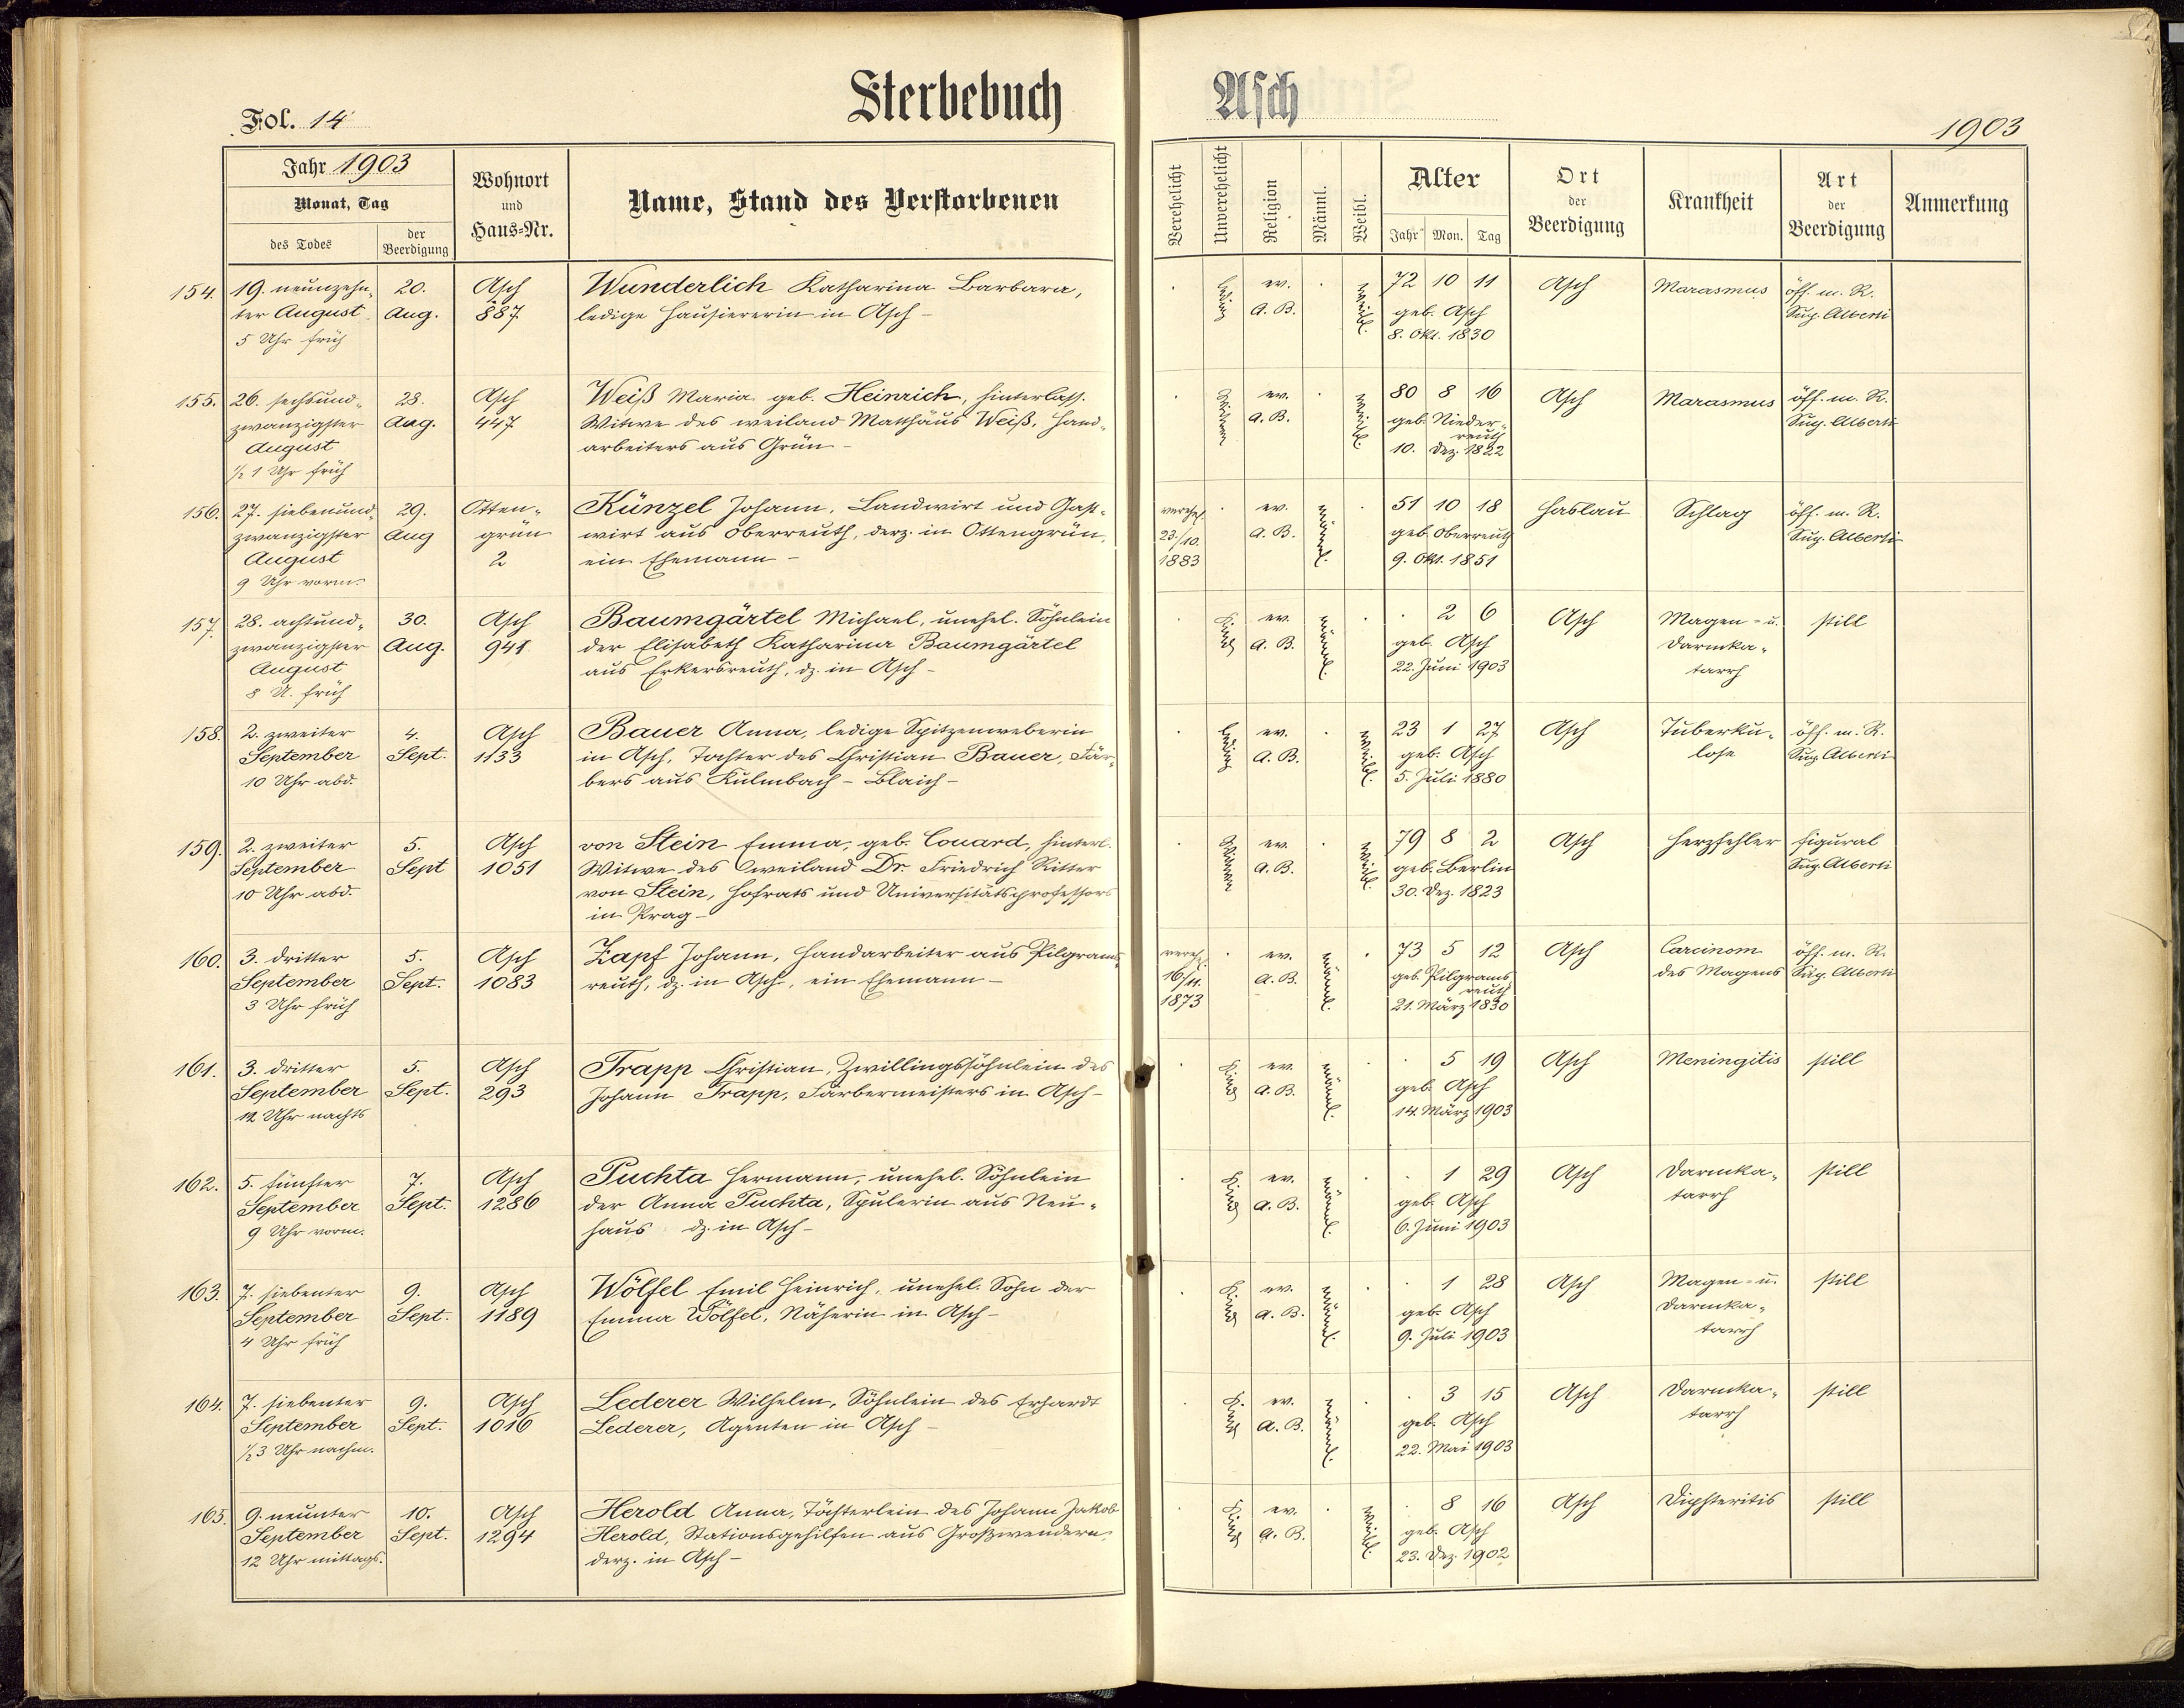 Fol. 14
Sterbebuch
Asch
1903
Jahr 1903
Monat, Tag
des Todes
der Beerdigung
Wohnort und Haus-Nr.
Name, Stand des Verstorbenen
Verehelicht
Unverehelicht
Religion
Männl.
Weibl.
Alter
Jahr Mon. Tag
Ort der Beerdigung
Krankheit
Art der Beerdigung
Anmerkung
154. 19. neunzehn- 20. Asch Wunderlich Katharina Barbara, ledig ev. weibl. 72 10 11 Asch Marasmus öff. m. R.
ter August Aug. 887 ledige Hausiererin in Asch – A. B. geb. Asch Sup. Alberti
5 Uhr früh 8. Okt. 1830
155. 26. sechsund- 28. Asch Weiß Maria geb. Heinrich, hinterlass. Witwe ev. weibl. 80 8 16 Asch Marasmus öff. m. R.
zwanzigster Aug. 447 Witwe des weiland Matthäus Weiß, Hand- A. B. geb. Nieder- Sup. Alberti
August arbeiters aus Grün – reuth
½ 1 Uhr früh 10. Dez. 1822
156. 27. siebenund- 29. Otten- Künzel Johann, Landwirt und Gast- verehel. ev. männl. 51 10 18 Haslau Schlag öff. m. R.
zwanzigster Aug grün wirt aus Oberreuth, derz. in Ottengrün, 23./10. A. B. geb. Oberreuth Sup. Alberti
August 2 ein Ehemann – 1883 9. Okt. 1851
9 Uhr vorm.
157. 28. achtund- 30. Asch Baumgärtel Michael, unehel. Söhnlein Kind ev. männl. 2 6 Asch Magen- u. still
zwanzigster Aug. 941 der Elisabeth Katharina Baumgärtel A. B. geb. Asch Darmka-
August aus Erkersreuth, dz. in Asch – 22. Juni 1903 tarrh
8 U. früh
158. 2. zweiter 4. Asch Bauer Anna, ledige Spitzenweberin ledig ev. weibl. 23 1 27 Asch Tuberku- öff. m. R.
September Sept. 1133 in Asch, Tochter des Christian Bauer, Fär- A. B. geb. Asch lose Sup. Alberti
10 Uhr abd. bers aus Kulmbach – Blaich – 5. Juli 1880
159. 2. zweiter 5. Asch von Stein Emma, geb. Couard, hinterl. Witwe ev. weibl. 79 8 2 Asch Herzfehler figural
September Sept 1051 Witwe des weiland Dr. Friedrich Ritter A. B. geb. Berlin Sup. Alberti
10 Uhr abd. von Stein, Hofrats und Universitätsprofessors 30. Dez. 1823
in Prag –
160. 3. dritter 5. Asch Zapf Johann, Handarbeiter aus Pilgrams- verehel. ev. männl. 73 5 12 Asch Carcinom öff. m. R.
September Sept. 1083 reuth, dz. in Asch, ein Ehemann – 16/11. A. B. geb. Pilgrams- des Magens Sup. Alberti
3 Uhr früh 1873 reuth
21. März 1830
161. 3. dritter 5. Asch Trapp Christian, Zwillingssöhnlein des Kind ev. männl. 5 19 Asch Meningitis still
September Sept. 293 Johann Trapp, Färbermeisters in Asch – A. B. geb. Asch
12 Uhr nachts 14. März 1903
162. 5. fünfter 7. Asch Puchta Hermann, unehel. Söhnlein Kind ev. männl. 1 29 Asch Darmka- still
September Sept. 1286 der Anna Puchta, Spulerin aus Neu- A. B. geb. Asch tarrh
9 Uhr vorm. haus dz. in Asch – 6. Juni 1903
163. 7. siebenter 9. Asch Wölfel Emil Heinrich, unehel. Sohn der Kind ev. männl. 1 28 Asch Magen- u. still
September Sept. 1189 Emma Wölfel, Näherin in Asch – A. B. geb. Asch Darmka-
4 Uhr früh 9. Juli 1903 tarrh
164. 7. siebenter 9. Asch Lederer Wilhelm, Söhnlein des Erhardt Kind ev. männl. 3 15 Asch Darmka- still
September Sept. 1016 Lederer, Agenten in Asch – A. B. geb. Asch tarrh
½3 Uhr nachm. 22. Mai 1903
165. 9. neunter 10. Asch Herold Anna, Töchterlein des Johann Jakob Kind ev. weibl. 8 16 Asch Diphteritis still
September Sept. 1294 Herold, Stationsgehilfen aus Großwendern A. B. geb. Asch
12 Uhr mittags. derz. in Asch – 23. Dez. 1902